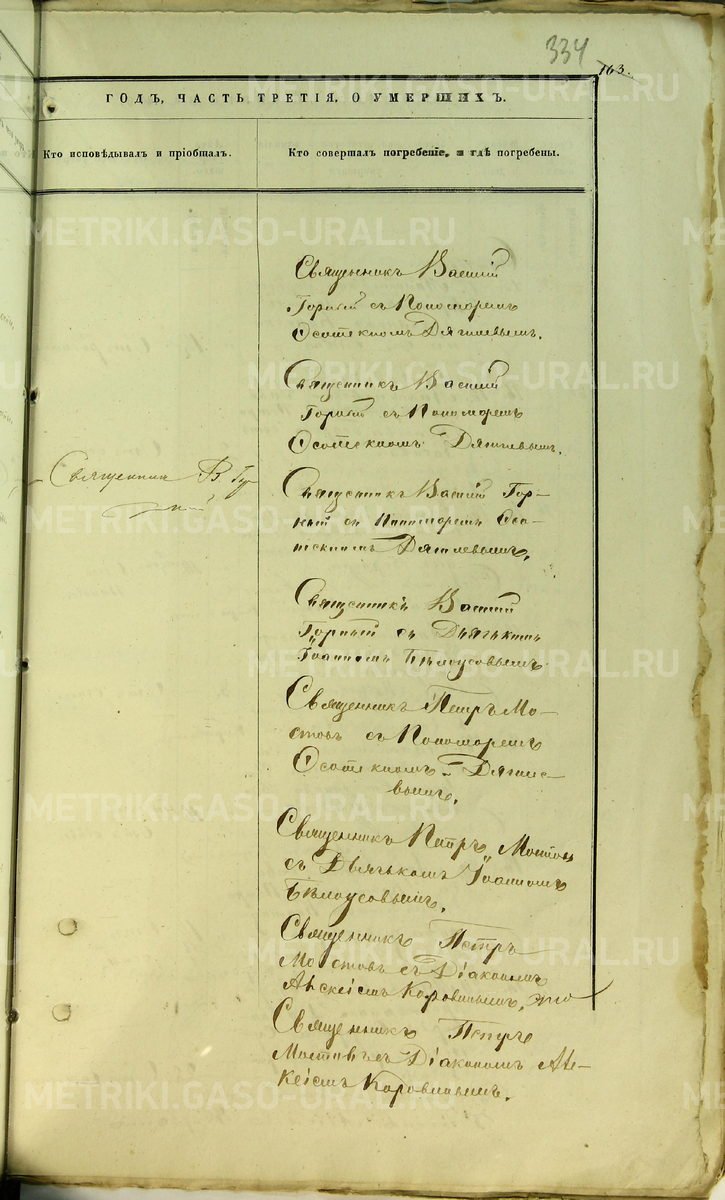 334
163.
ГОДЪ, ЧАСТЬ ТРЕТІЯ, О УМЕРШИХЪ.
Кто исповѣдывалъ и пріобщалъ.
Кто совершалъ погребеніе, и гдѣ погребены.
Священник В. Гор-
кій
Священникъ Василій
Горкій съ Пономоремъ
Дягилевымъ.
Священникъ Василій
Горкій съ Пономоремъ
Дягилевымъ.
Священникъ Василій Гор-
кій съ Пономоремъ
Дягилевымъ.
Священникъ Василій
Горкій съ Дьячькомъ
Іоанномъ Бѣлоусовымъ.
Священникъ Петръ Мо-
стовъ съ Пономоремъ
Дягиле-
вымъ.
Священникъ Петръ Мостовъ
съ Дьячькомъ Іоанномъ
Бѣлоусовымъ.
Священникъ Петръ
Мостовъ съ Діакономъ
Алексіемъ Коровинымъ.
Священникъ Петръ
Мостовъ съ Діакономъ Але-
ксіемъ Коровинымъ.
METRIKI.GASO-URAL.RU